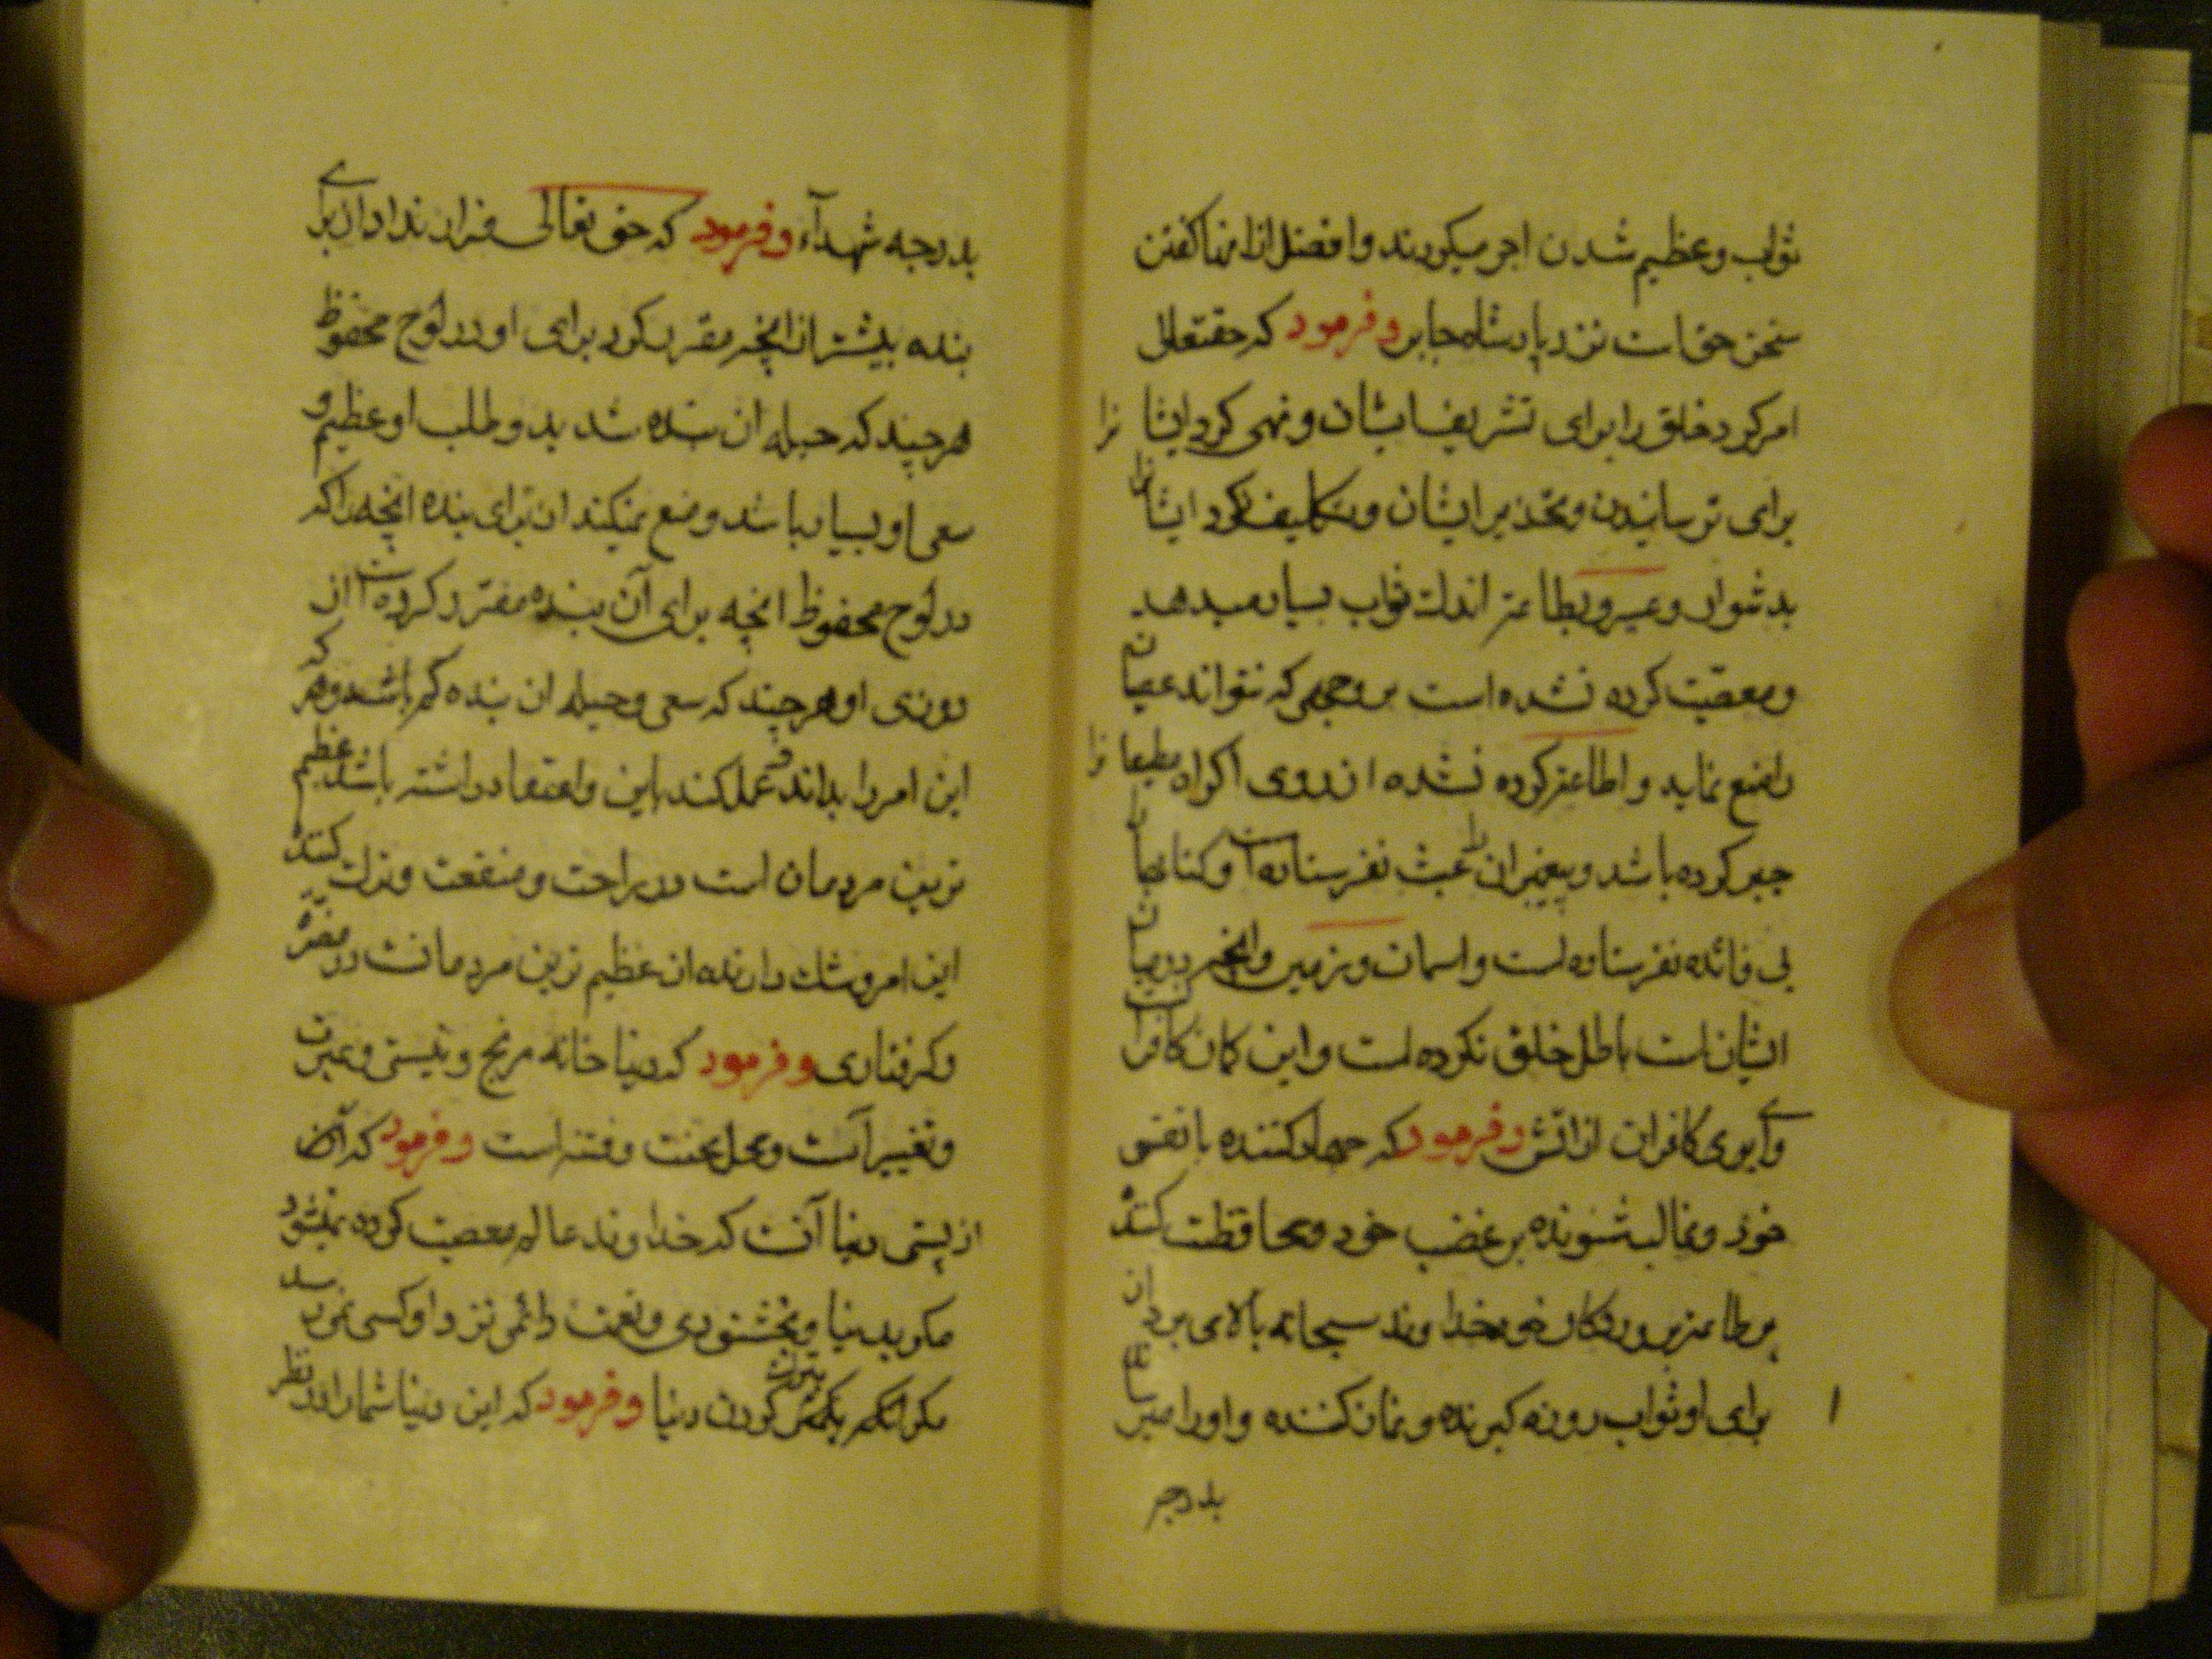 ثواب و عظیم شدن اجر میکردند و افضل از اینها گفتن
سخن حق است نزد پادشاه جابر و فرمود که حقتعالی
امر کرد خلق را برای تشریف ایشان و نهی کرد ایشانرا
برای ترسانیدن و تحذیر ایشان و تکلیف نکرد ایشانرا
بدشوار و عسیر و بطاعتر اندک ثواب بسیار میدهد
و معصیت کرده نشده است بر وجهی که نتواند عصیان
را منع نماید و اطاعتر کرده نشده از روی اکراه مطیعانرا
جبر کرده باشد و پیغمبران را عبث نفرستاده است و کتابها را
بی فائده نفرستاده است و اسمان و زمین و انچه در میان
ایشان است باطل خلق نکرده است و این کمان کافرانست
وای بوی کافران از اتش و فرمود که جهاد کننده با نفس
خود و غالب شونده بر غضب خود و محافظت کننده
بر طاعتر پروردکار خود خداوند سبحانه بالای برد از
برای او ثواب روزه کیرنده و نماز کننده و او را میرساند
بدرجر
بدرجه شهدآء و فرمود که حق تعالی قرار نداد از برای
بنده بیشتر از انچه مقرر کرد برای او در لوح محفوظ
هر چند که حیله ان بنده شدید و طلب او عظیم و
سعی او بسیار باشد و منع نمیکند از برای بنده انچه را که
در لوح محفوظ انچه برای آن بنده مقرر کرده است از
روزی او هر چند که سعی و حیله ان بنده کم باشد و هر که
این امر را بداند و عمل کند باین و اعتقاد داشته باشد عظیم
ترین مردمان است در راحت و منفعت و ترک کننده
این امر و شک دارنده ان عظیم ترین مردمانست در مضرة
و کرفتاری و فرمود که دنیا خانه رنج و نیستی و عبرت
و تغییر آنست و محل محنت و فتنه است و فرمود که
از پستی دنیا آنست که خداوند عالم معصیت کرده نمیشود
مکر بدنیا و بخشنودی و نعمت دائمی نزد او کسی نمیرسد
مکر انکه بترک کردن دنیا و فرمود که این دنیا شما را در نظر